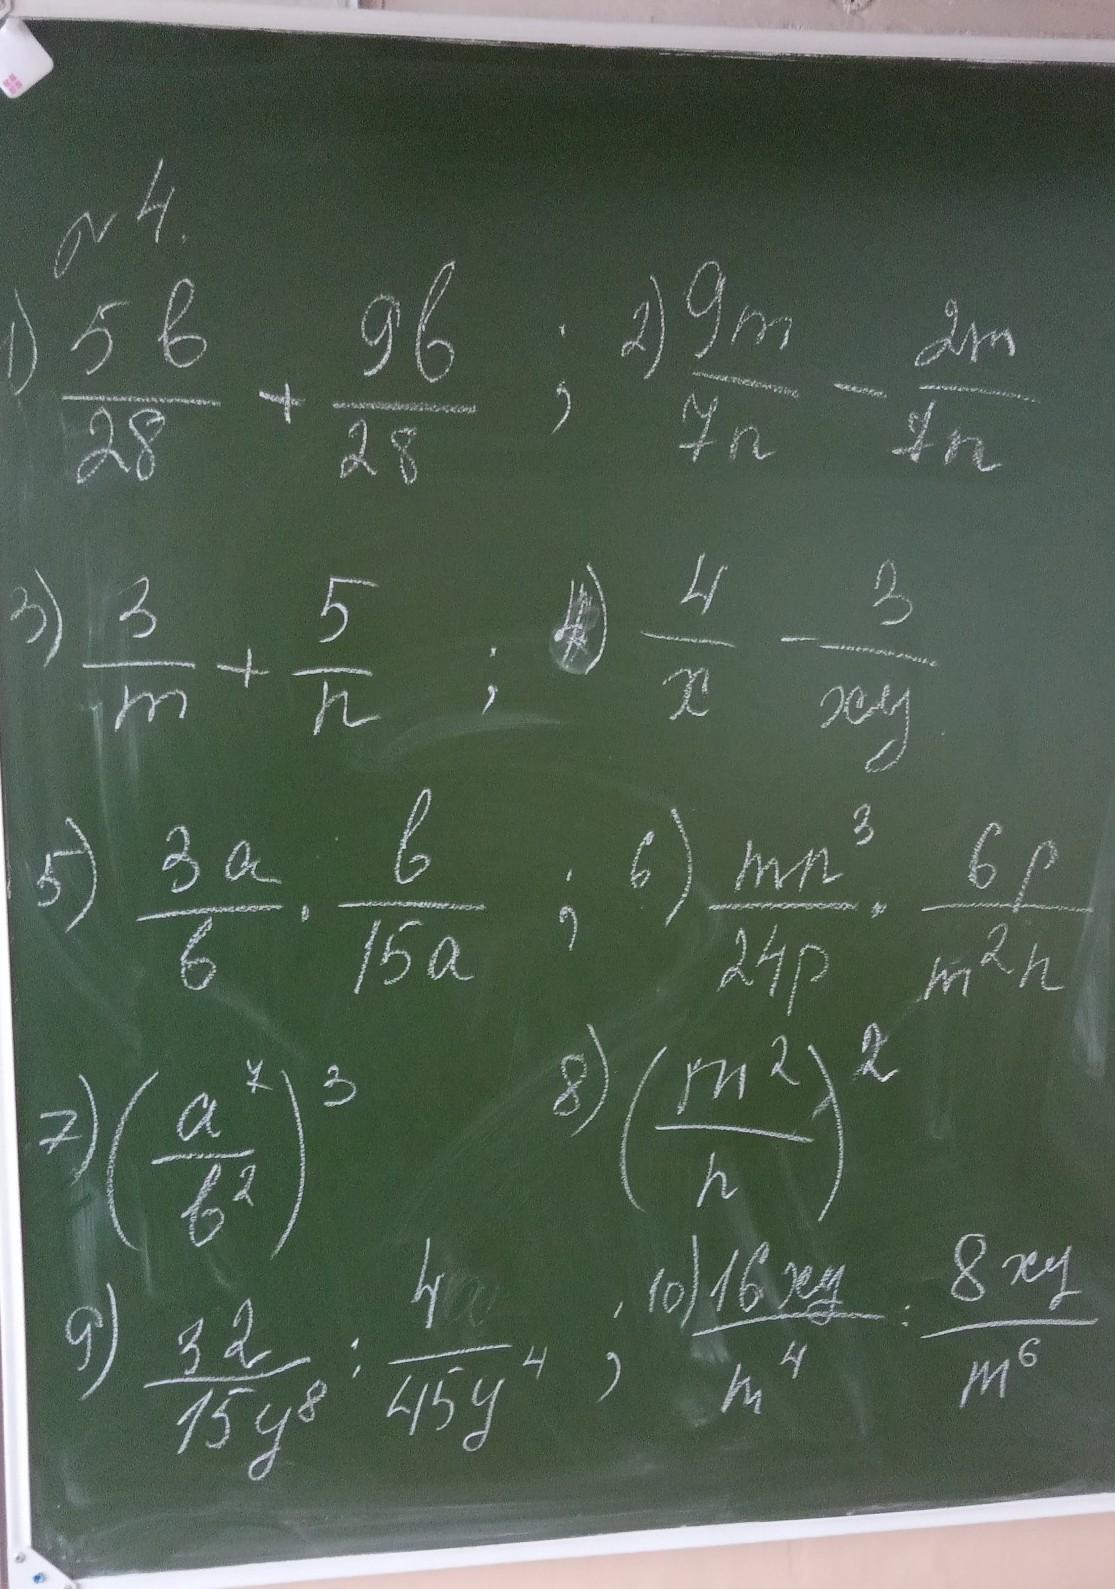 №4.
1) 5b/28 + 9b/28 ; 2) 9m/7n − 2m/7n
3) 3/m + 5/n ; 4) 4/x − 3/xy
5) 3a/b · b/15a ; 6) mn³/24p · 6p/m²n
7) (a⁷/b²)³ 8) (m²/n)²
9) 32/15y⁸ : 4/45y⁴ ; 10) 16xy/m⁴ : 8xy/m⁶